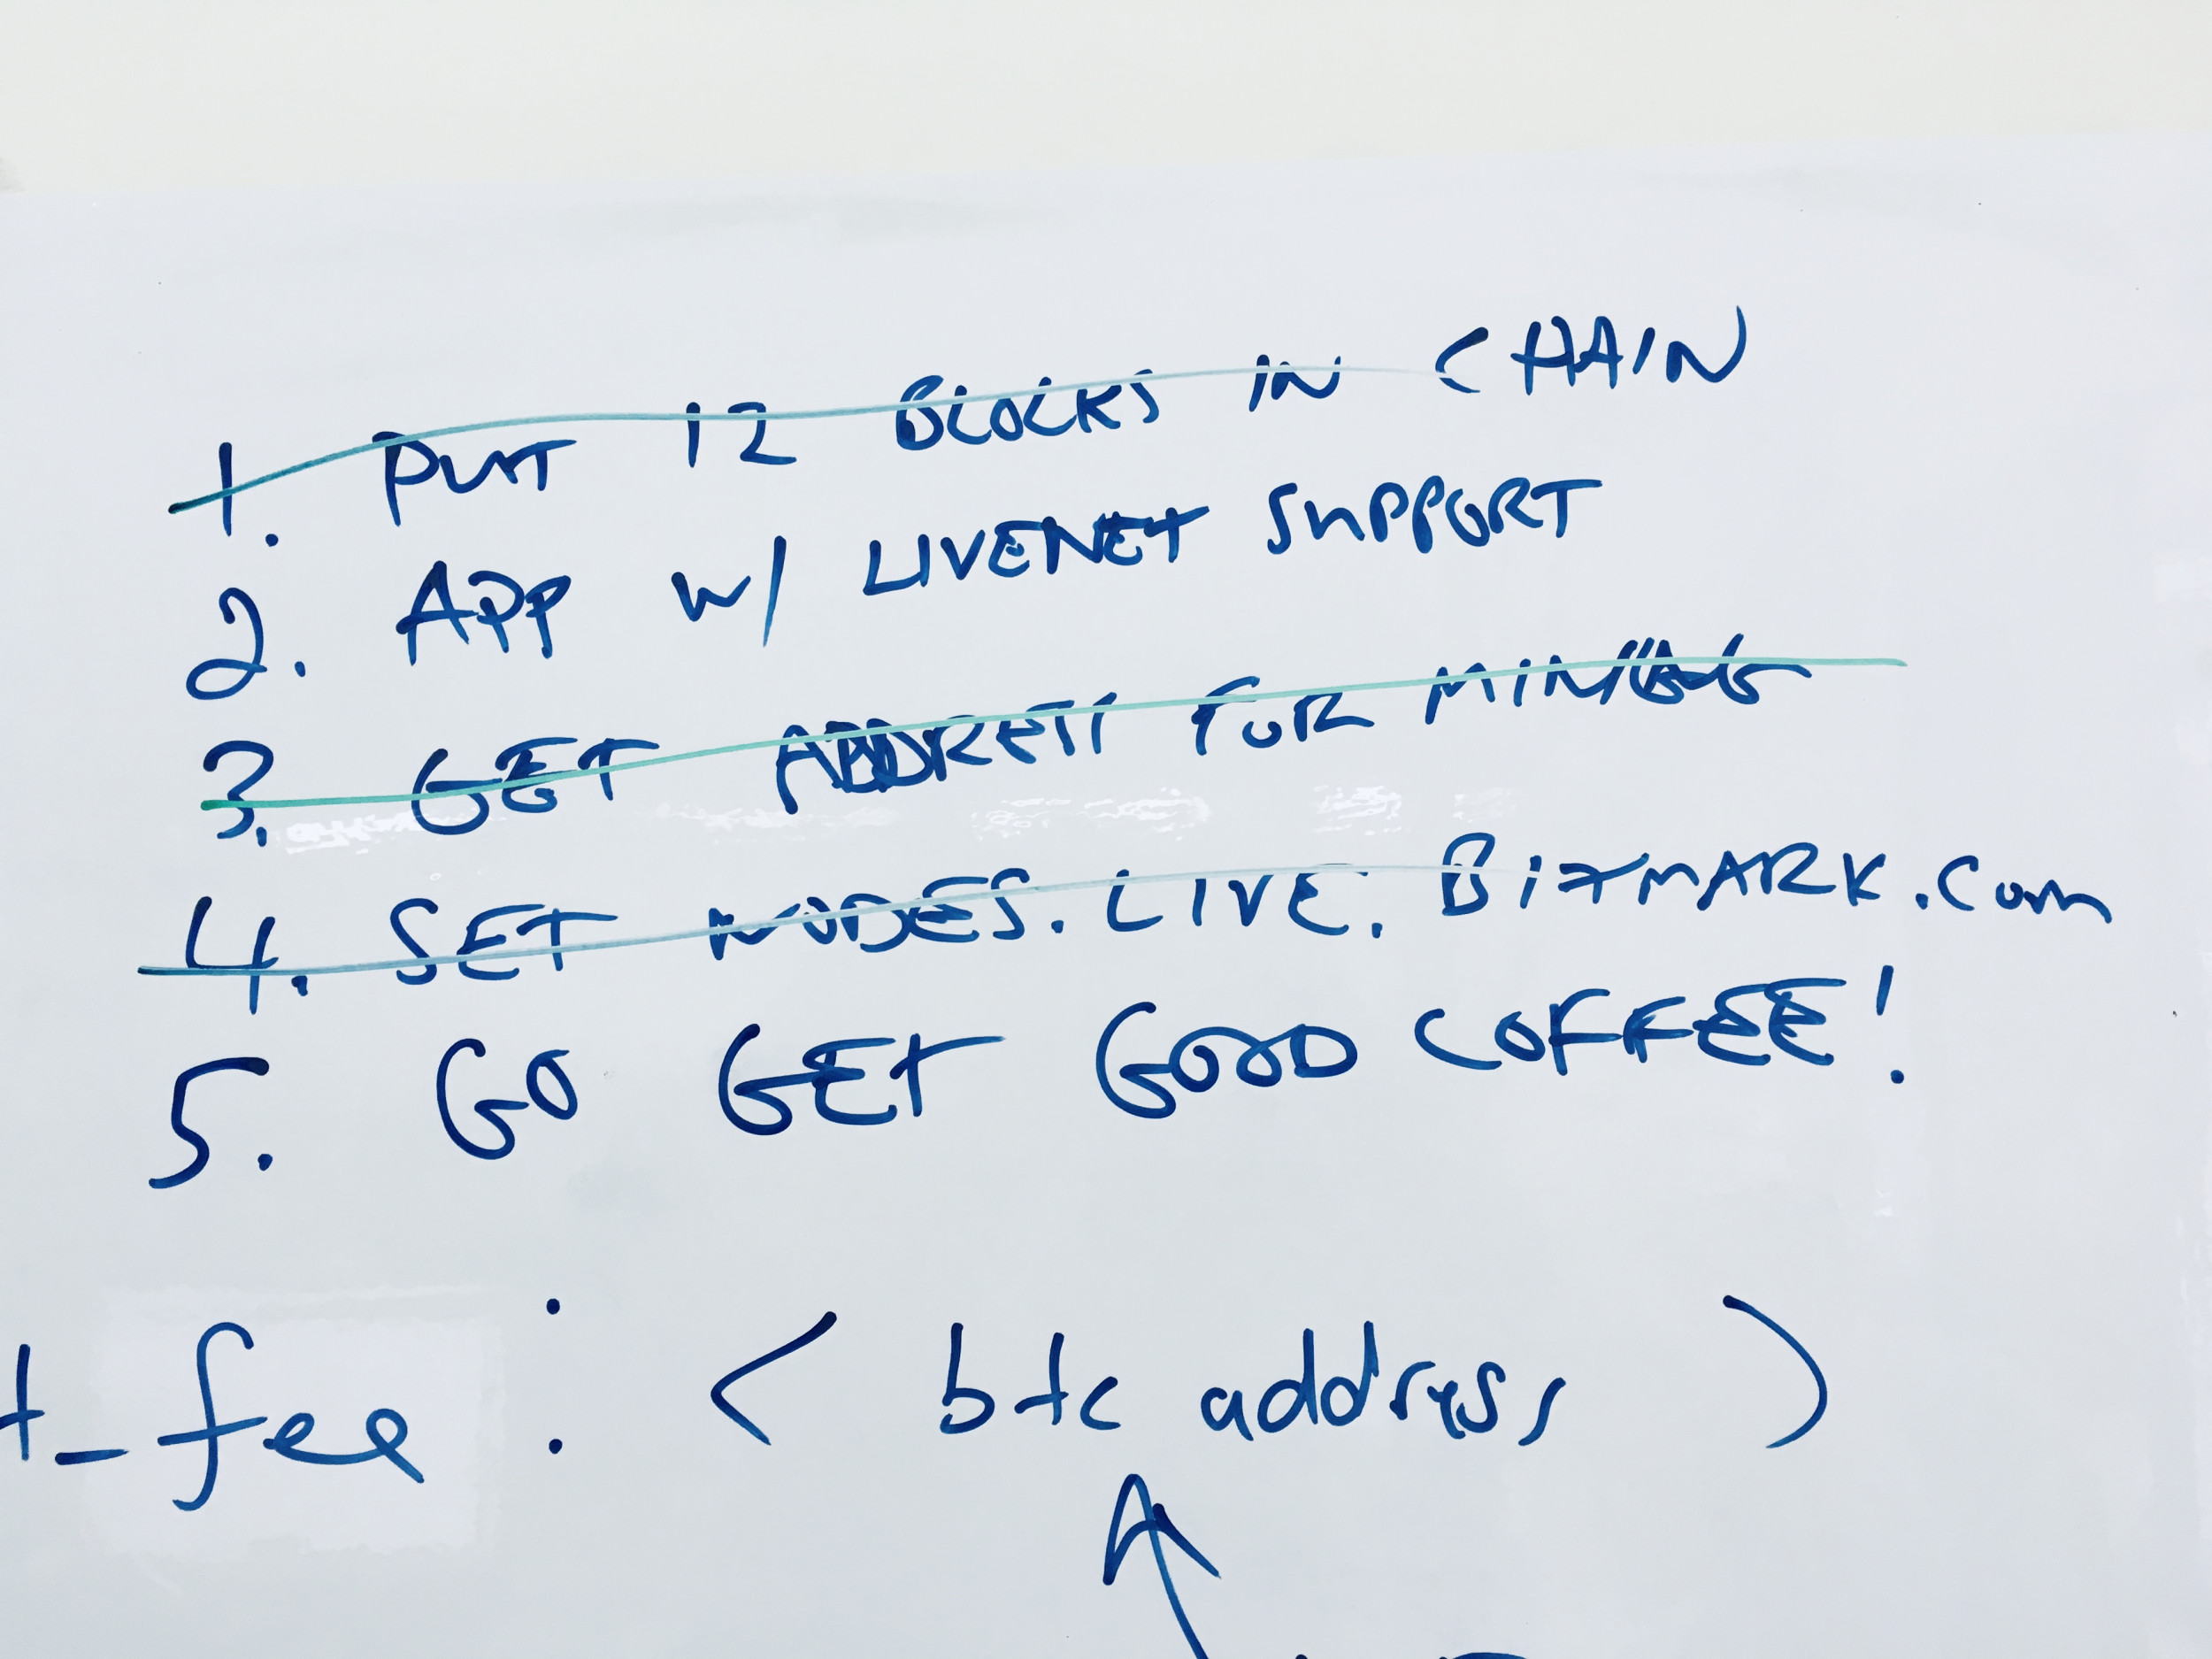 1. PUT 12 BLOCKS IN CHAIN
2. APP w/ LIVENET SUPPORT
3. GET ADDRESS FOR MINING
4. SET NODES.LIVE.BITMARK.COM
5. GO GET GOOD COFFEE!
t_fee : < btc address )